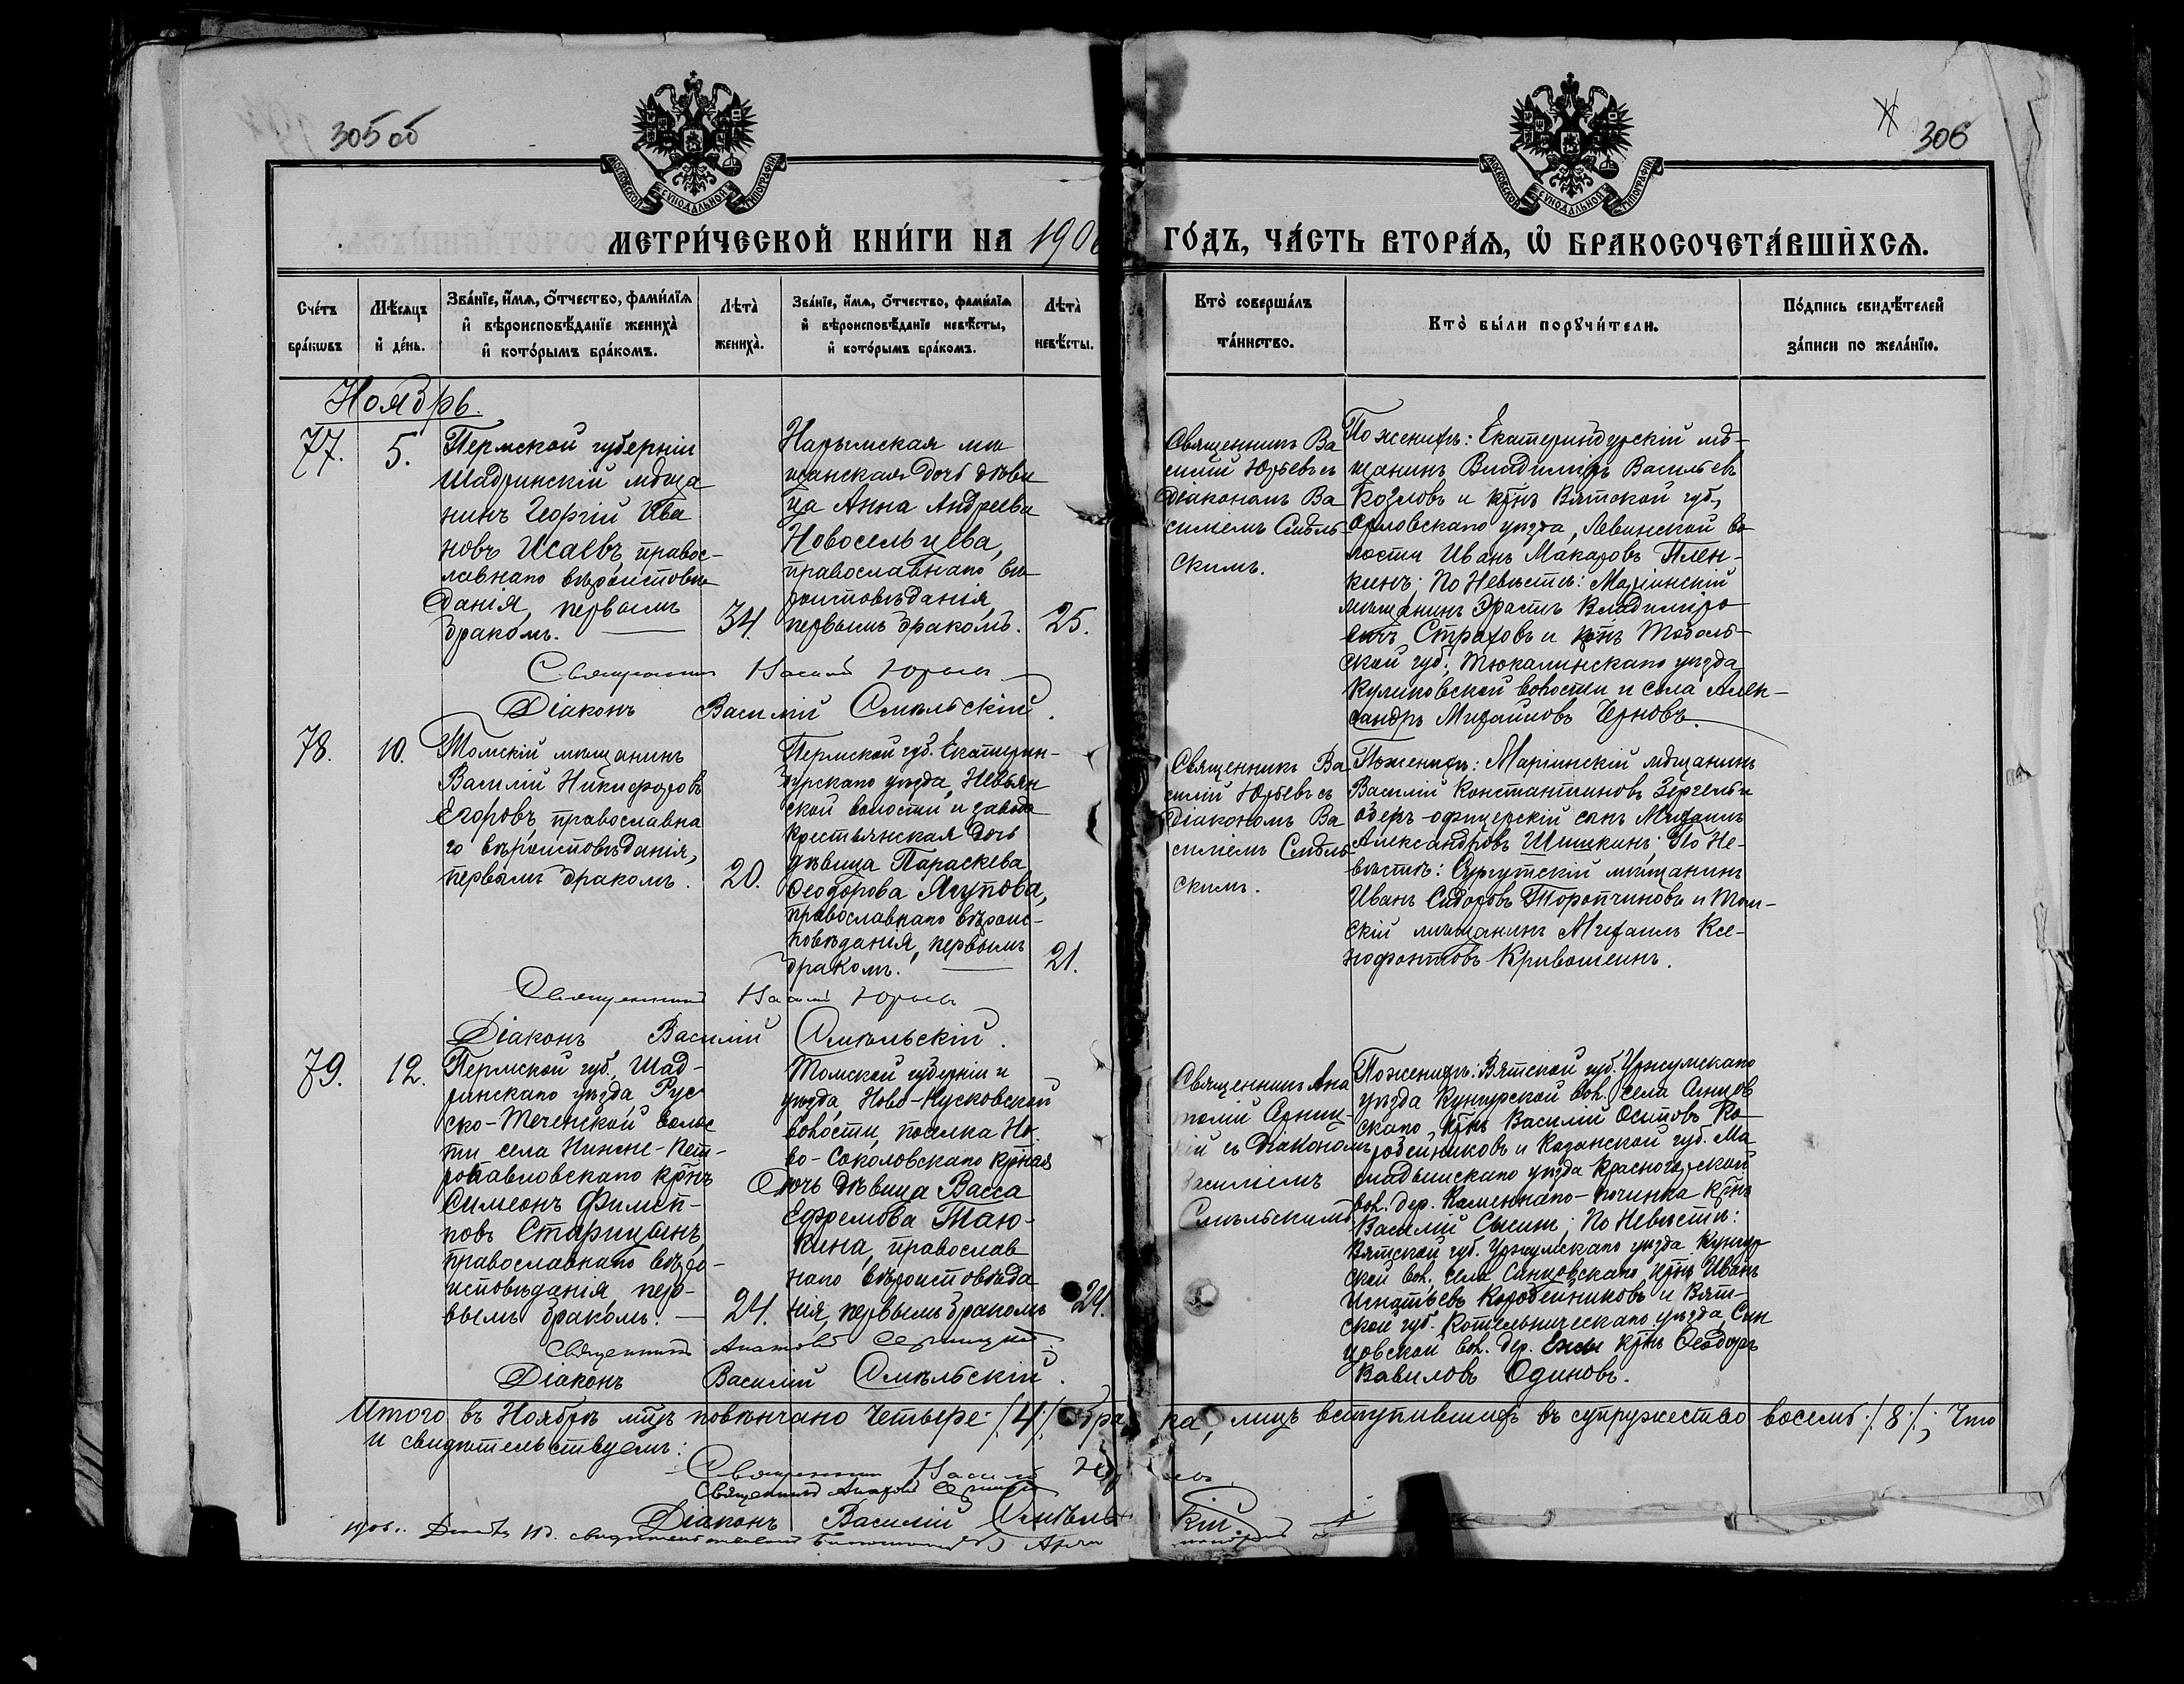 305 об
306
МОСКОВСКОЙ СѴНОДАЛЬНОЙ ТИПОГРАФІИ
МОСКОВСКОЙ СѴНОДАЛЬНОЙ ТИПОГРАФІИ
МЕТРИ́ЧЕСКОЙ КНИ́ГИ НА 190
ГО́ДЪ, ЧА́СТЬ ВТОРА́Я, Ѡ БРАКОСОЧЕТА́ВШИХСЯ.
Сче́тъ бра́кѡвъ
Мѣ́сяцъ и де́нь.
Зва́нїе, и́мя, о́тчество, фами́лїя
и вѣроисповѣ́данїе жениха̀
и кото́рымъ бра́комъ.
Лѣта̀ жениха̀.
Зва́нїе, и́мя, о́тчество, фами́лїя
и вѣроисповѣ́данїе невѣ́сты,
и кото́рымъ бра́комъ.
Лѣта̀ невѣ́сты.
Кто̀ соверша́лъ
та́инство.
Кто̀ бы́ли порꙋчи́тели.
По́дпись свидѣ́телей
за́писи по жела́нїю.
Ноябрь.
77.
5.
Пермской губерніи
Шадринскій мѣща
нинъ Георгій Ива
новъ Исаевъ, правос-
лавнаго вѣроисповѣ
данія, первымъ
бракомъ.
34.
Нарымская мѣ
щанская дочь дѣви
ца Анна Андреева
Новосельцева,
православнаго вѣ
роисповѣданія,
первымъ бракомъ.
25.
Священникъ Ва
силій Юрьевъ съ
діакономъ Ва
силіемъ Смѣль-
скимъ.
По женихѣ: Екатеринбургскій мѣ-
щанинъ Владиміръ Васильевъ
Козловъ и крнъ Вятской губ.,
Орловскаго уѣзда, Левинской во
лости Иванъ Макаровъ Плен-
кинъ; По Невѣстѣ: Маріинскій
мѣщанинъ Эрастъ Владиміро
вичъ Страховъ и крнъ Тоболь-
ской губ., Тюкалинскаго уѣзда,
Куликовской волости и села Алек-
сандръ Михайловъ Черновъ.
Священникъ Василій Юрьевъ
Діаконъ Василій Смѣльскій.
78.
10.
Томскій мѣщанинъ
Василій Никифоровъ
Егоровъ, православна
го вѣроисповѣданія,
первымъ бракомъ.
20.
Пермской губ. Екатерин-
бургскаго уѣзда, Невьян
ской волости и завода
крестьянская дочь
дѣвица Параскева
Ѳеодорова Ягупова,
православнаго вѣроис-
повѣданія, первымъ
бракомъ.
21.
Священникъ Ва
силій Юрьевъ съ
діакономъ Ва
силіемъ Смѣль-
скимъ.
По женихѣ: Маріинскій мѣщанинъ
Василій Константиновъ Зергель и
оберъ-офицерскій сынъ Михаилъ
Александровъ Шишкинъ; По Не-
вѣстѣ: Сургутскій мѣщанинъ
Иванъ Сидоровъ Торопчиновъ и Том-
скій мѣщанинъ Михаилъ Ксе-
нофонтовъ Кривошеинъ.
Священникъ Василій Юрьевъ
Діаконъ Василій Смѣльскій.
79.
12.
Пермской губ., Шад-
ринскаго уѣзда Рус
ско-Теченской волос
ти села Нижне-Пет-
ропавловскаго крнъ
Симеонъ Филип-
повъ Старицынъ,
православнаго вѣро-
исповѣданія, пер-
вымъ бракомъ.
24.
Томской губерніи и
уѣзда, Ново-Кусковской
волости, поселка Но-
во-Соколовскаго крная
дочь дѣвица Васса
Ефремова Таю-
кина, православ
наго вѣроисповѣда
нія, первымъ бракомъ
24.
Священникъ Ана
толій
съ діакономъ
Василіемъ
Смѣльскимъ
По женихѣ: Вятской губ. Уржумскаго
уѣзда Кунгурской вол. села
крнъ Василій Осиповъ Ко-
робейниковъ и Казанской губ. Ма
мадышскаго уѣзда Красногорской
вол. дер. Каменнаго-починка крнъ
Василій; По Невѣстѣ:
Вятской губ. Уржумскаго уѣзда Кунгур
ской вол. села крнъ Иванъ
Игнатьевъ Коробейниковъ и Вят-
ской губ. Котельническаго уѣзда,
вол. дер. крнъ Ѳеодоръ
Вавиловъ Одиновъ.
Священникъ Анатолій
Діаконъ Василій Смѣльскій.
Итого въ Ноябрѣ мцѣ повѣнчано четыре /4/ бра ка, лицъ вступившихъ въ супружество восемь /8/; Что
и свидѣтельствуемъ:
Священникъ Василій Юрьевъ
Священникъ Анатолій
Діаконъ Василій Смѣльскій.